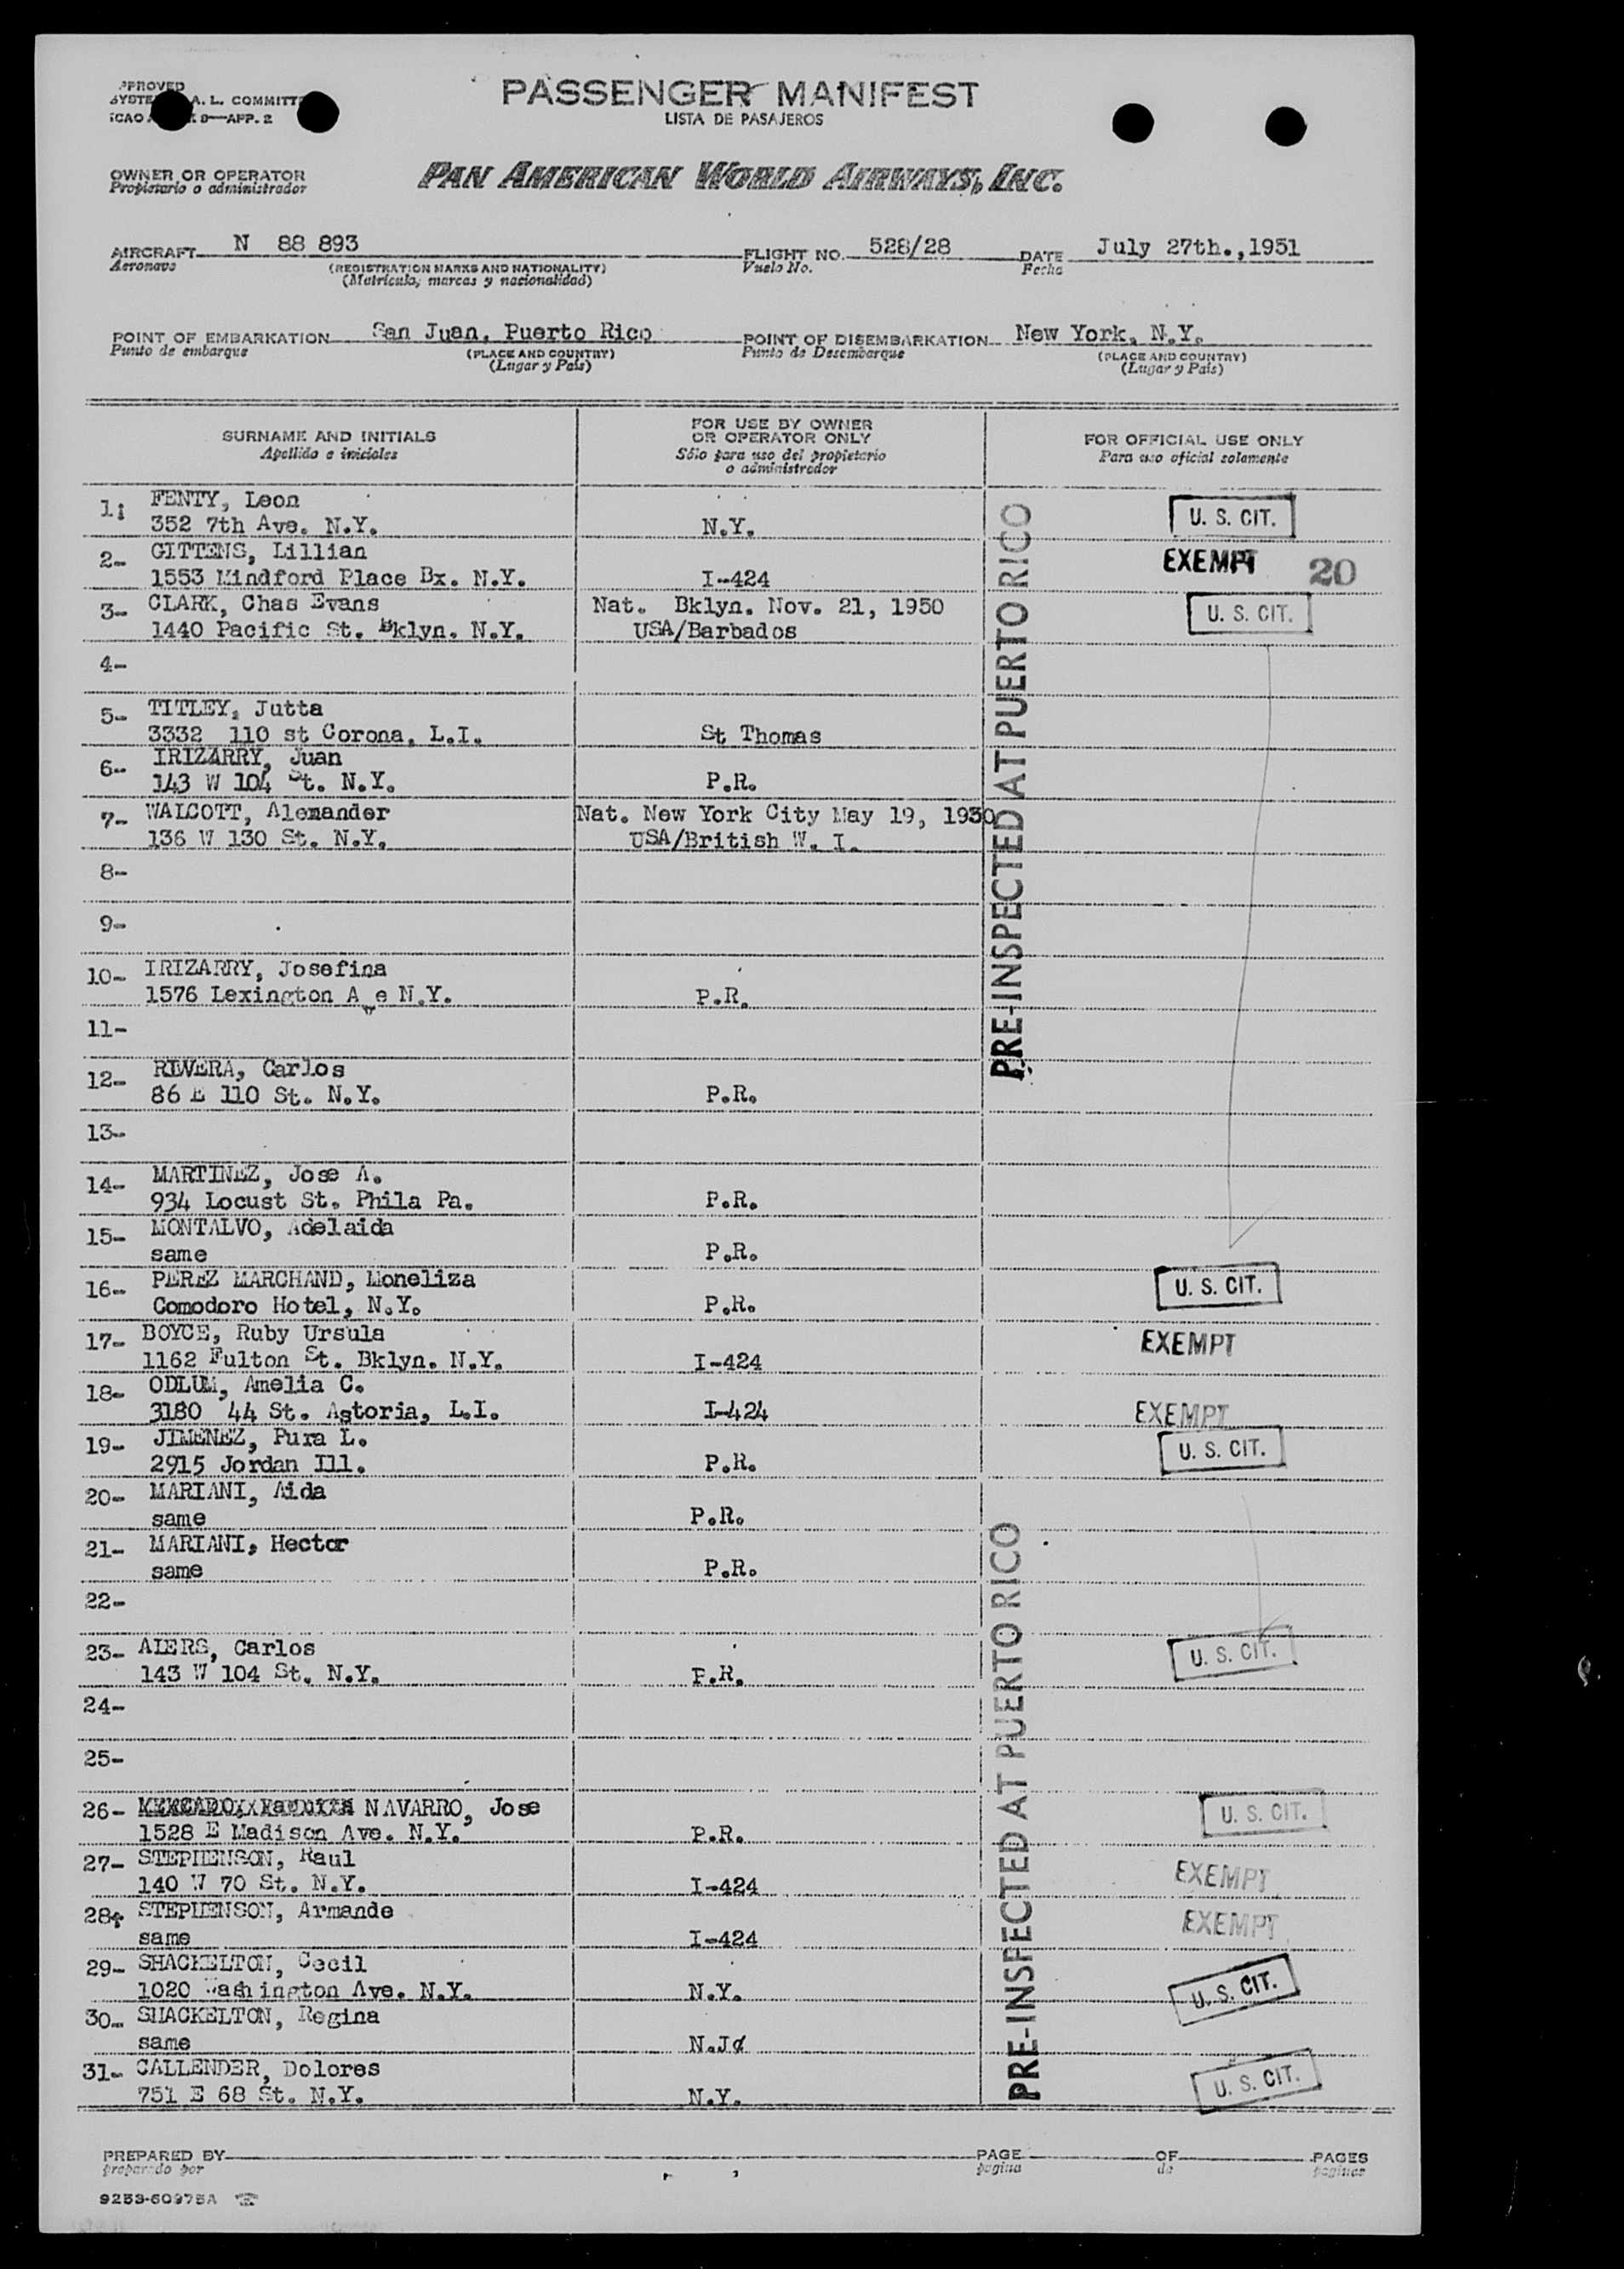 PASSENGER MANIFEST
LISTA DE PASAJEROS
A. L. COMMITT
APP. 2
OWNER OR OPERATOR
Propietario o administrador
PAN AMERICAN WORLD AIRWAYS, INC.
AIRCRAFT N 88 893 FLIGHT NO. 528/28 DATE July 27th.,1951
Aeronave (REGISTRATION MARKS AND NATIONALITY) Vuelo No. Fecha
(Matrícula, marcas y nacionalidad)
POINT OF EMBARKATION San Juan, Puerto Rico POINT OF DISEMBARKATION New York, N.Y.
Punto de embarque (PLACE AND COUNTRY) Punto de Desembarque (PLACE AND COUNTRY)
(Lugar y País) (Lugar y País)
SURNAME AND INITIALS
Apellido e iniciales
FOR USE BY OWNER
OR OPERATOR ONLY
Sólo para uso del propietario
o administrador
FOR OFFICIAL USE ONLY
Para uso oficial solamente
1; FENTY, Leon U. S. CIT.
352 7th Ave. N.Y. N.Y.
2- GITTENS, Lillian EXEMPT 20
1553 Mindford Place Bx. N.Y. I-424
3- CLARK, Chas Evans Nat. Bklyn. Nov. 21, 1950 U. S. CIT.
1440 Pacific St. Bklyn. N.Y. USA/Barbados
4-
5- TITLEY, Jutta
3332 110 st Corona, L.I. St Thomas
6- IRIZARRY, Juan
143 W 104 St. N.Y. P.R.
7- WALCOTT, Alemander Nat. New York City May 19, 1930
136 W 130 St. N.Y. USA/British W. I.
8-
9-
10- IRIZARRY, Josefina
1576 Lexington Ave N.Y. P.R.
11-
PRE-INSPECTED AT PUERTO RICO
12- RIVERA, Carlos
86 E 110 St. N.Y. P.R.
13-
14- MARTINEZ, Jose A.
934 Locust St. Phila Pa. P.R.
15- MONTALVO, Adelaida
same P.R.
16- PEREZ MARCHAND, Moneliza U. S. CIT.
Comodoro Hotel, N.Y. P.R.
17- BOYCE, Ruby Ursula EXEMPT
1162 Fulton St. Bklyn. N.Y. I-424
18- ODLUM, Amelia C.
3180 44 St. Astoria, L.I. I-424 EXEMPT
19- JIMENEZ, Pura L. U. S. CIT.
2915 Jordan Ill. P.R.
20- MARIANI, Aida
same P.R.
21- MARIANI, Hector
same P.R.
22-
23- AIERS, Carlos U. S. CIT.
143 W 104 St. N.Y. P.R.
24-
25-
26- NAVARRO, Jose U. S. CIT.
1528 E Madison Ave. N.Y. P.R.
27- STEPHENSON, Raul EXEMPT
140 W 70 St. N.Y. I-424
28- STEPHENSON, Armande EXEMPT
same I-424
29- SHACKELTON, Cecil U. S. CIT.
1020 Washington Ave. N.Y. N.Y.
30- SHACKELTON, Regina
same N.J
31- CALLENDER, Dolores U. S. CIT.
751 E 68 St. N.Y. N.Y.
PRE-INSPECTED AT PUERTO RICO
PREPARED BY PAGE OF PAGES
preparado por pagina de paginas
9253-60975A